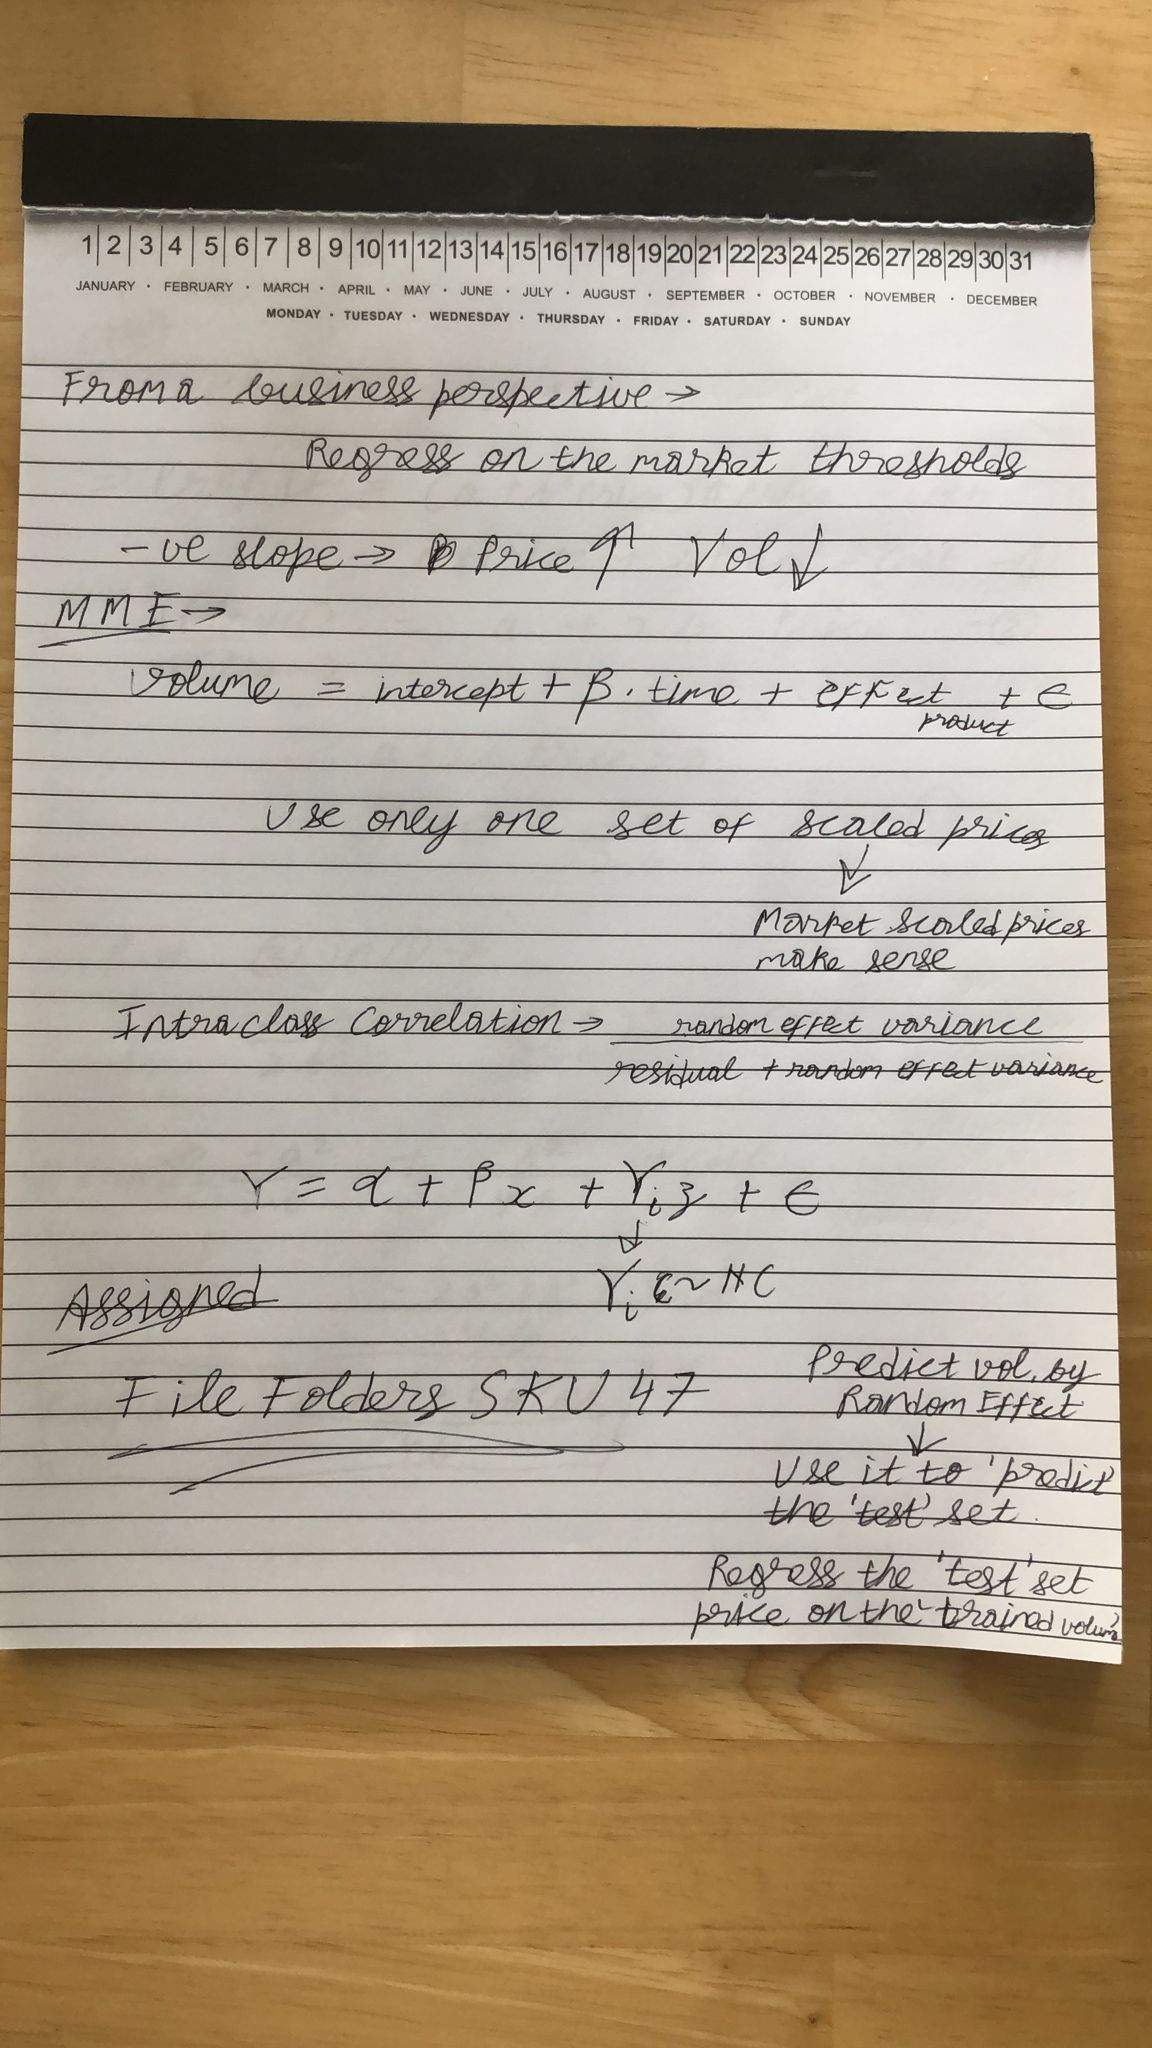 1|2|3|4|5|6|7|8|9|10|11|12|13|14|15|16|17|18|19|20|21|22|23|24|25|26|27|28|29|30|31
JANUARY · FEBRUARY · MARCH · APRIL · MAY · JUNE · JULY · AUGUST · SEPTEMBER · OCTOBER · NOVEMBER · DECEMBER
MONDAY · TUESDAY · WEDNESDAY · THURSDAY · FRIDAY · SATURDAY · SUNDAY
From a business perspective →
Regress on the market thresholds
-ve slope → Price ↑ Vol ↓
MME →
volume = intercept + β . time + effect product + ϵ
Use only one set of scaled prices
↓
Market scaled prices
make sense
Intraclass Correlation → random effect variance
residual + random effect variance
Y = α + βx + γi z + ϵ
↓
γi ~ N(
Assigned
File Folders SKU 47
Predict vol. by
Random Effect
↓
Use it to 'predict'
the 'test' set.
Regress the 'test' set
price on the 'trained volume'